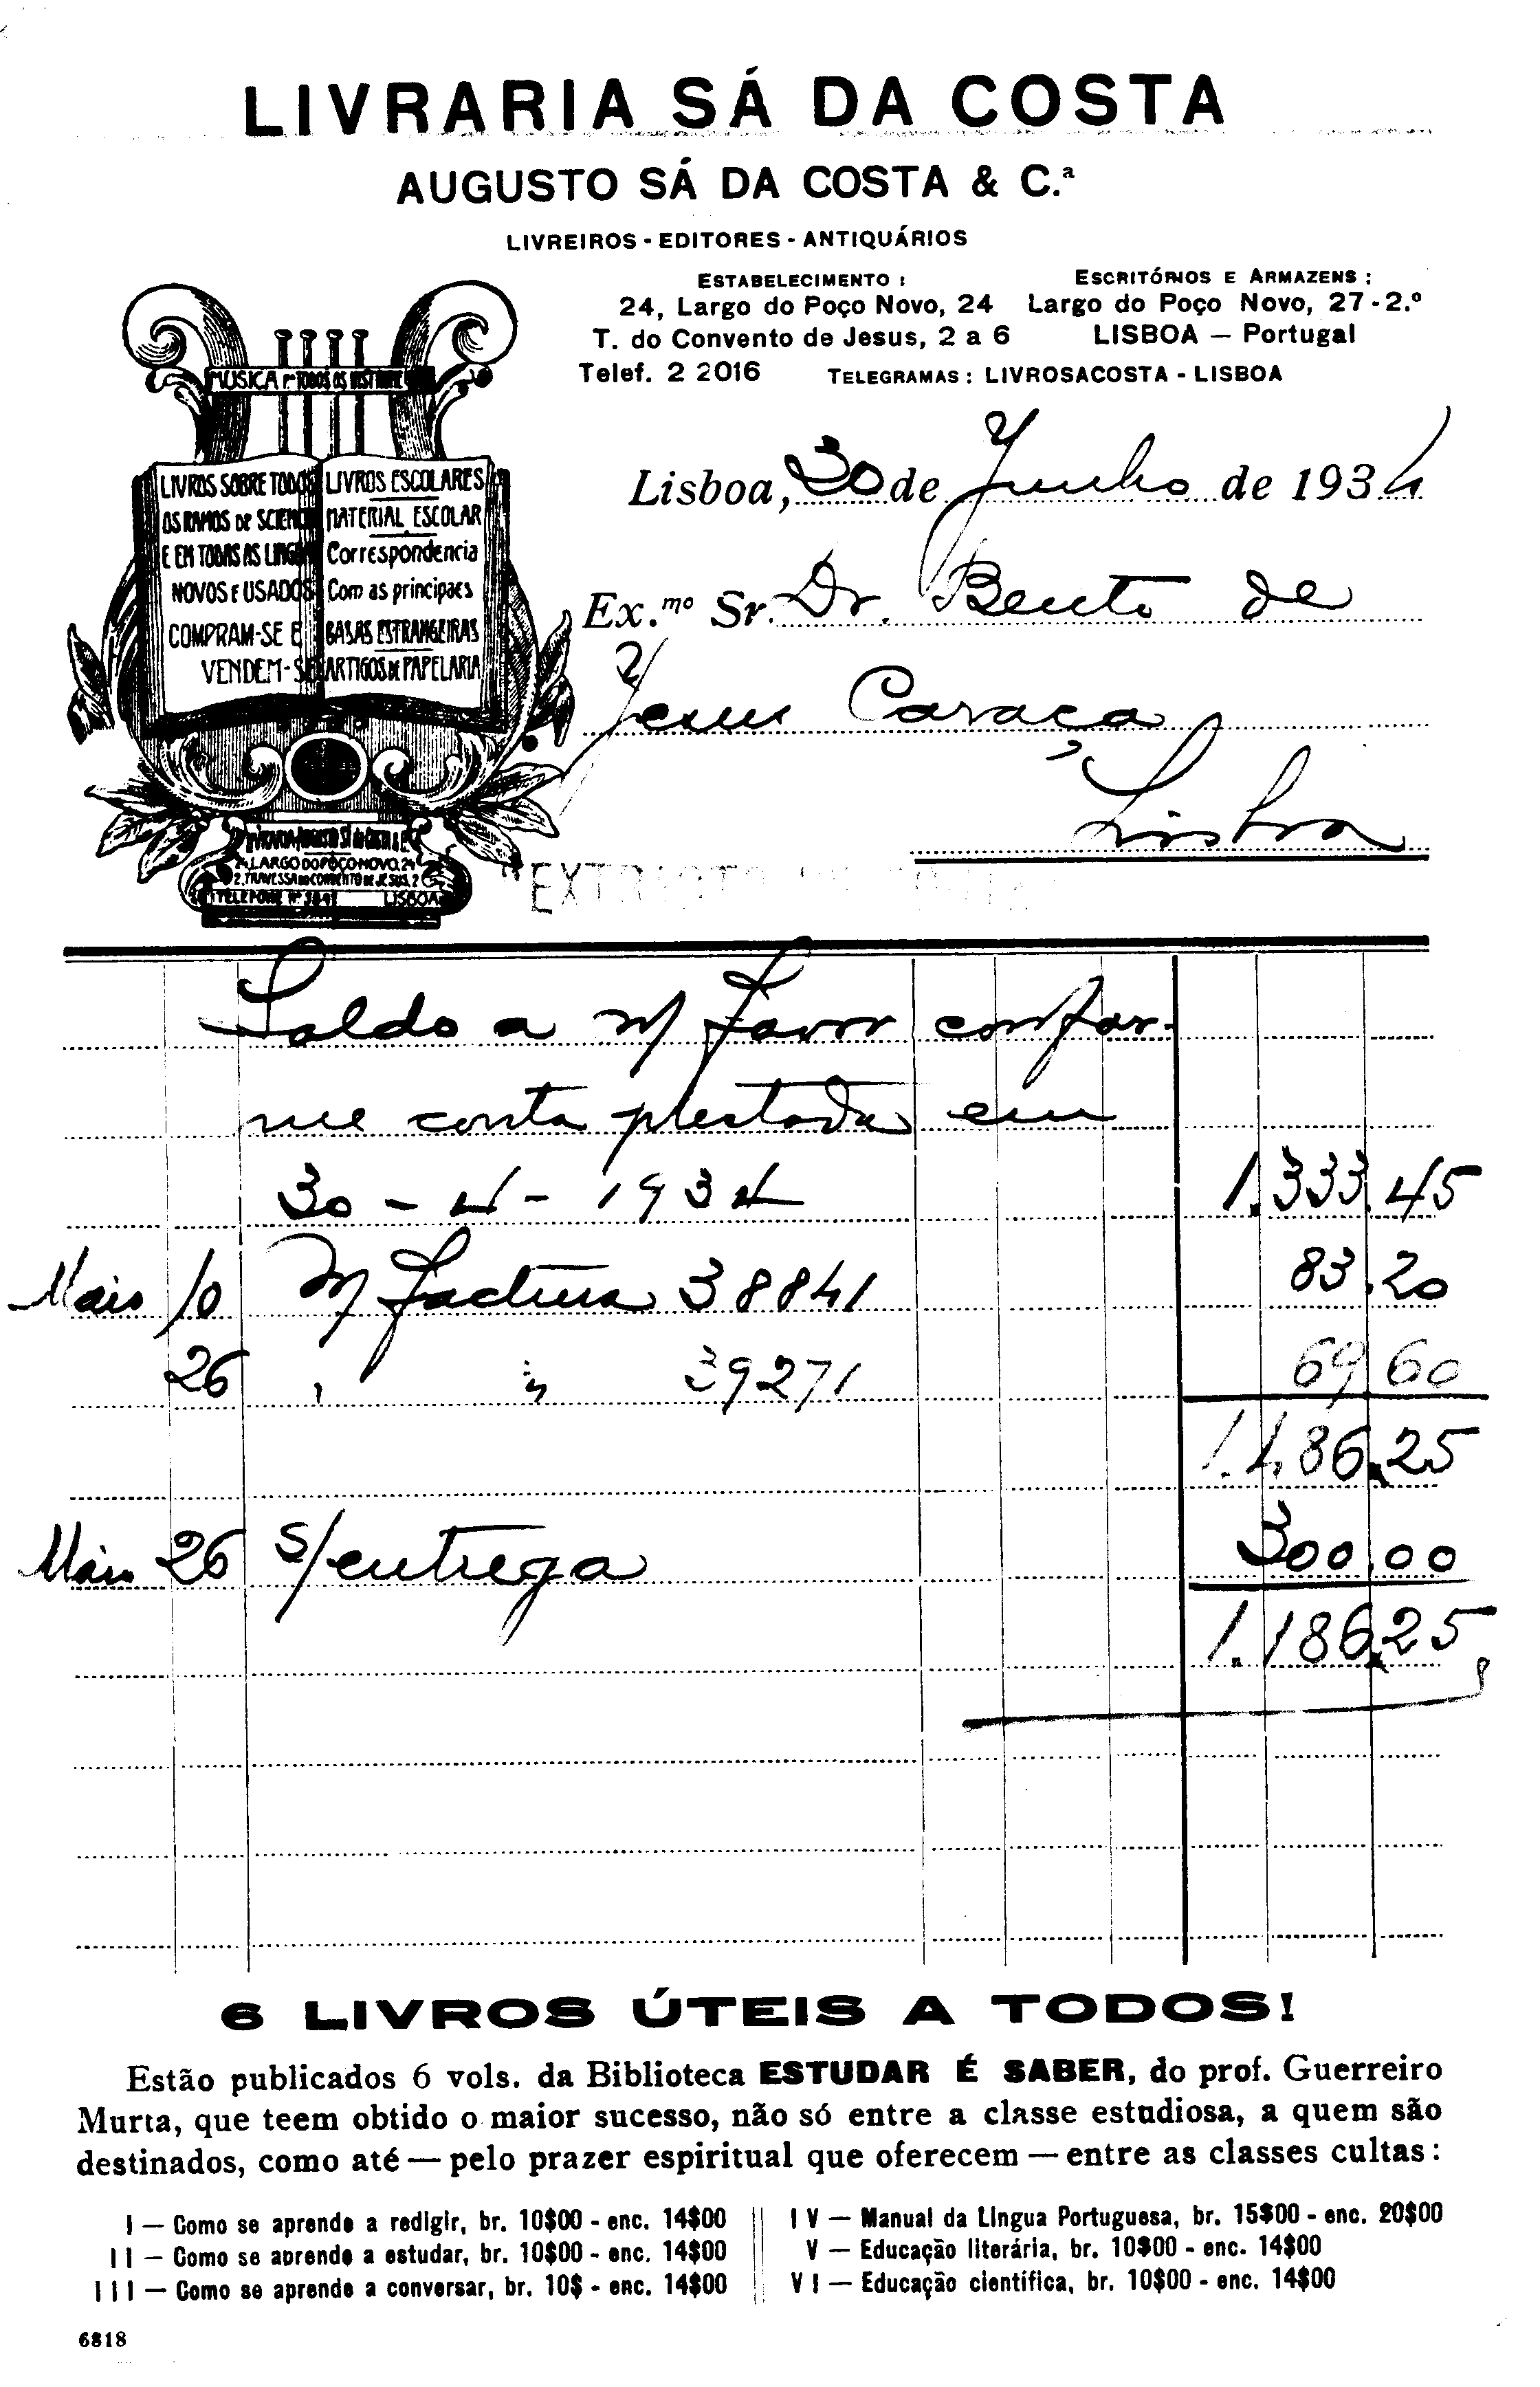 LIVRARIA SÁ DA COSTA
AUGUSTO SÁ DA COSTA & C.ª
LIVREIROS - EDITORES - ANTIQUÁRIOS
ESTABELECIMENTO :
24, Largo do Poço Novo, 24
T. do Convento de Jesus, 2 a 6
Telef. 2 2016
ESCRITÓRIOS E ARMAZENS :
Largo do Poço Novo, 27-2.º
LISBOA — Portugal
TELEGRAMAS : LIVROSACOSTA - LISBOA
MUSICA TODOS OS
LIVROS SOBRE TODOS
OS RAMOS DE SCIENCIA
E EM TODAS AS LINGUAS
NOVOS E USADOS
COMPRAM-SE E
VENDEM-SE
LIVROS ESCOLARES
MATERIAL ESCOLAR
Correspondencia
Com as principaes
CASAS ESTRANGEIRAS
ARTIGOS DE PAPELARIA
24, LARGO DO POÇO NOVO, 24
2, TRAVESSA DO CONVENTO DE JESUS, 2
TELEFONE Nº LISBOA
Lisboa, 30 de Junho de 1934
Ex.mo Sr. Dr. Bento de
Jesus Caraça
Lisboa
EXTRACTO
Saldo a m/ favor confor-
me conta prestada em
30 - 4 - 1934 1.333.45
Maio 10 m/ factura 38841 83.20
26 " " 39271 69.60
1.486.25
Maio 26 s/ entrega 300.00
1.186.25
6 LIVROS ÚTEIS A TODOS!
Estão publicados 6 vols. da Biblioteca ESTUDAR É SABER, do prof. Guerreiro
Murta, que teem obtido o maior sucesso, não só entre a classe estudiosa, a quem são
destinados, como até — pelo prazer espiritual que oferecem — entre as classes cultas :
I — Como se aprende a redigir, br. 10$00 - enc. 14$00
II — Como se aprende a estudar, br. 10$00 - enc. 14$00
III — Como se aprende a conversar, br. 10$ - enc. 14$00
IV — Manual da Lingua Portuguesa, br. 15$00 - enc. 20$00
V — Educação literária, br. 10$00 - enc. 14$00
VI — Educação científica, br. 10$00 - enc. 14$00
6818